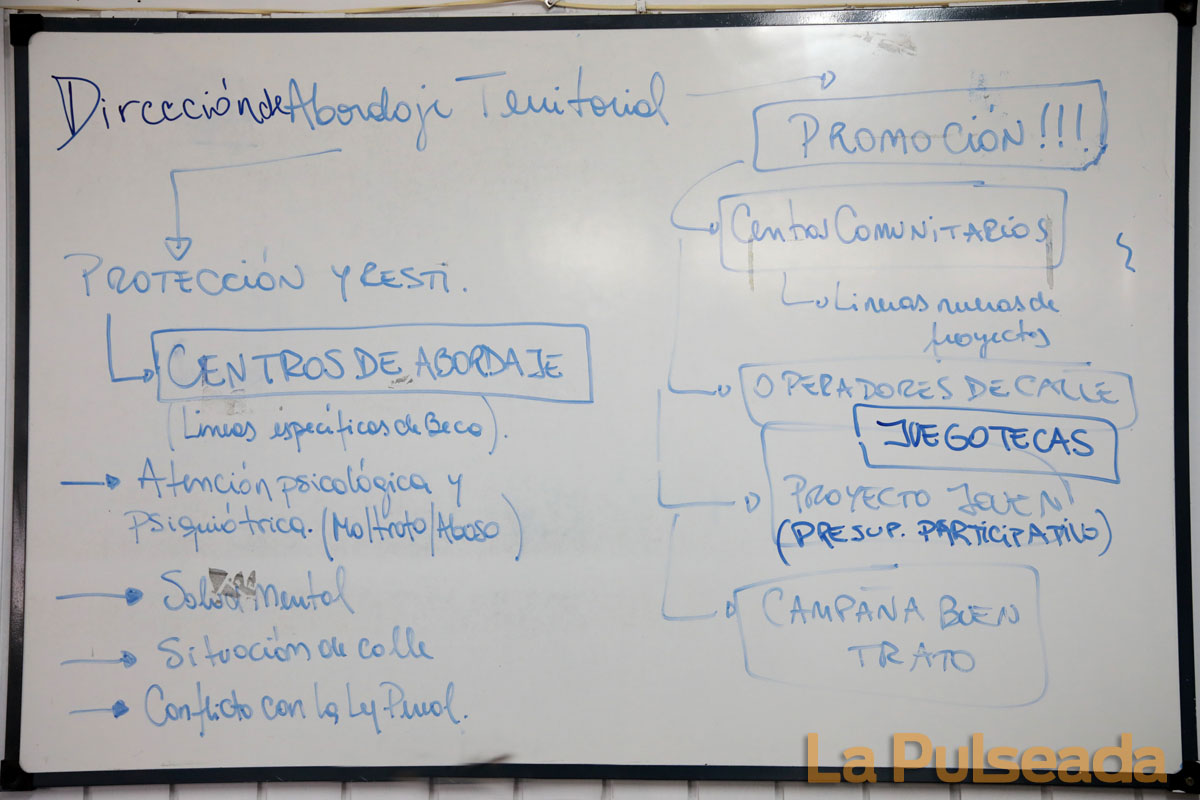 Dirección de Abordaje Territorial
PROTECCIÓN Y RESTI.
CENTROS DE ABORDAJE
(Lineas específicas de Beca).
Atención psicológica y
psiquiátrica. (Maltrato/Abuso)
Salud Mental
Situación de calle
Conflicto con la Ley Penal.
PROMOCIÓN!!!
Centros COMUNITARIOS
Lineas nuevas de
proyectos
OPERADORES DE CALLE
JUEGOTECAS
PROYECTO JOVEN
(PRESUP. PARTICIPATIVO)
CAMPAÑA BUEN
TRATO
La Pulseada